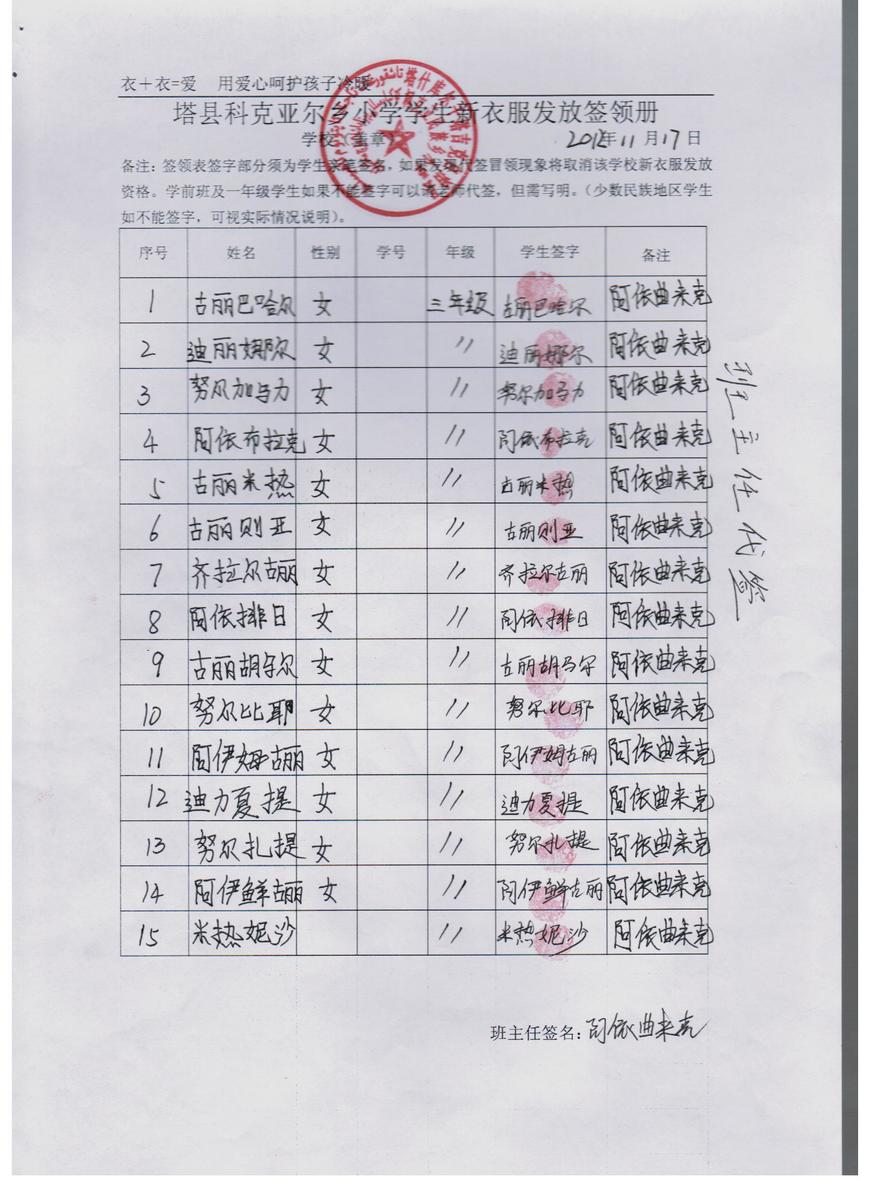 衣＋衣=爱 用爱心呵护孩子冷暖
塔县科克亚尔乡小学学生新衣服发放签领册
学校（盖章） 2012年11月17日
备注：签领表签字部分须为学生亲笔签名，如果发现代签冒领现象将取消该学校新衣服发放
资格。学前班及一年级学生如果不能签字可以请老师代签，但需写明。（少数民族地区学生
如不能签字，可视实际情况说明）。
序号 姓名 性别 学号 年级 学生签字 备注
1 古丽巴哈尔 女 三年级 古丽巴哈尔 阿依曲来克
2 迪丽娜尔 女 〃 迪丽娜尔 阿依曲来克
3 努尔加马力 女 〃 努尔加马力 阿依曲来克
4 阿依布拉克 女 〃 阿依布拉克 阿依曲来克
5 古丽米热 女 〃 古丽米热 阿依曲来克
6 古丽则亚 女 〃 古丽则亚 阿依曲来克
7 齐拉尔古丽 女 〃 齐拉尔古丽 阿依曲来克
8 阿依排日 女 〃 阿依排日 阿依曲来克
9 古丽胡马尔 女 〃 古丽胡马尔 阿依曲来克
10 努尔比耶 女 〃 努尔比耶 阿依曲来克
11 阿伊姆古丽 女 〃 阿伊姆古丽 阿依曲来克
12 迪力夏提 女 〃 迪力夏提 阿依曲来克
13 努尔扎提 女 〃 努尔扎提 阿依曲来克
14 阿伊鲜古丽 女 〃 阿伊鲜古丽 阿依曲来克
15 米热妮沙 〃 米热妮沙 阿依曲来克
班主任代签
班主任签名：阿依曲来克